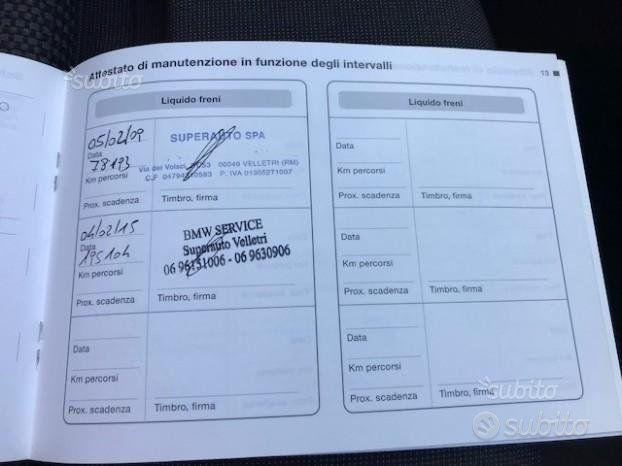 Attestato di manutenzione in funzione degli intervalli
13
Liquido freni
05/02/09
Data
78193
Km percorsi
Prox. scadenza
SUPERAUTO SPA
Via dei Volsci
00049 VELLETRI (RM)
P. IVA 01305271007
Timbro, firma
04/02/15
Data
195104
Km percorsi
Prox. scadenza
BMW SERVICE
Superauto Velletri
06 96151006 - 06 9630906
Timbro, firma
Data
Km percorsi
Prox. scadenza
Timbro, firma
Liquido freni
Data
Km percorsi
Prox. scadenza
Timbro, firma
Data
Km percorsi
Prox. scadenza
Timbro, firma
Data
Km percorsi
Prox. scadenza
Timbro, firma
subito
subito
subito